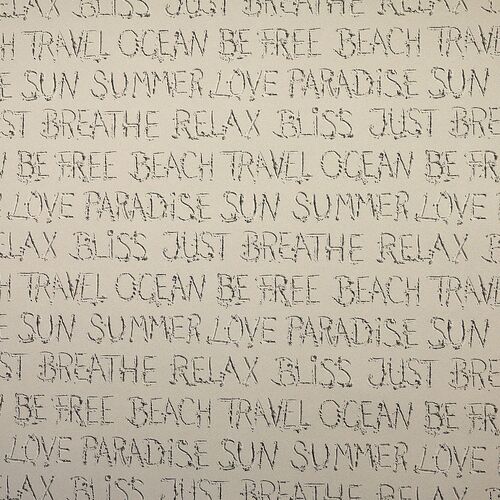 RELAX BLISS JUST BREATHE RELAX
TRAVEL OCEAN BE FREE BEACH
SUN SUMMER LOVE PARADISE SUN
BREATHE RELAX BLISS JUST
BE FREE BEACH TRAVEL OCEAN BE
LOVE PARADISE SUN SUMMER LOVE
BLISS JUST BREATHE RELAX
TRAVEL OCEAN BE FREE BEACH
SUN SUMMER LOVE PARADISE SUN
JUST BREATHE RELAX BLISS JUST
BE FREE BEACH TRAVEL OCEAN BE
LOVE PARADISE SUN SUMMER LOVE
BLISS JUST BREATHE RELAX